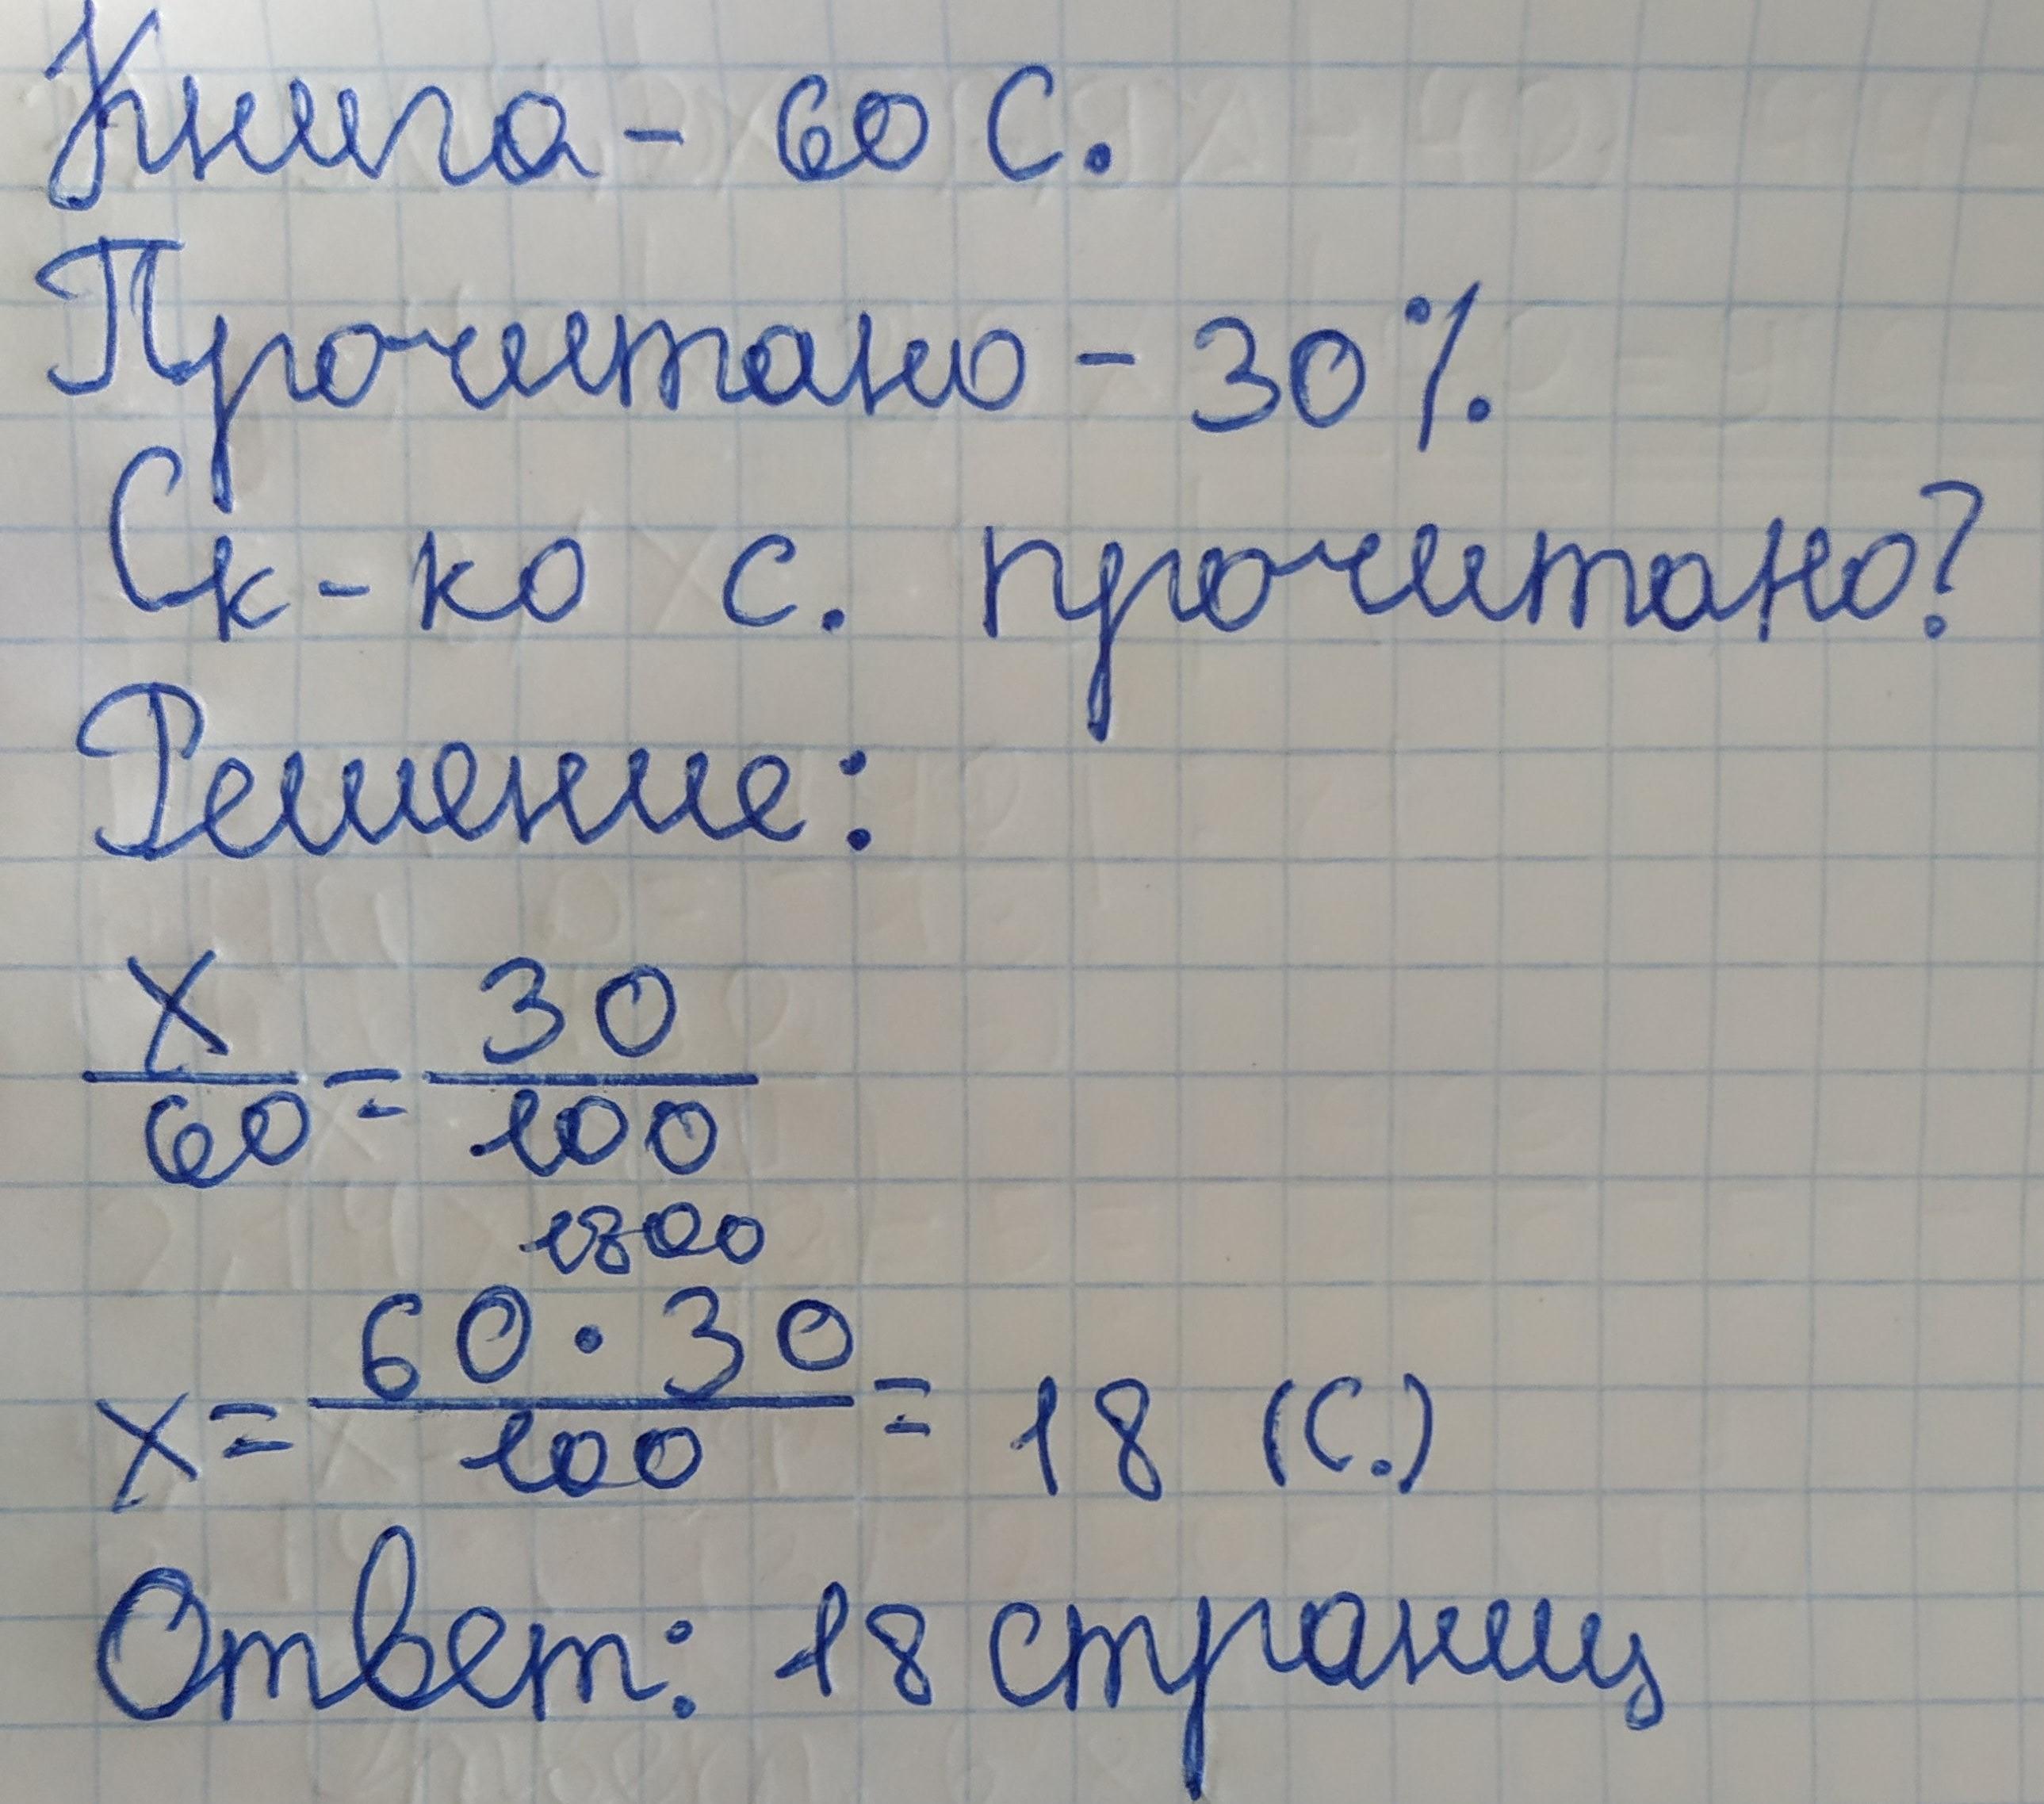 Книга - 60 с.
Прочитано - 30%.
Ск-ко с. прочитано?
Решение:
x/60 = 30/100
1800
x = 60 · 30/100 = 18 (с.)
Ответ: 18 страниц